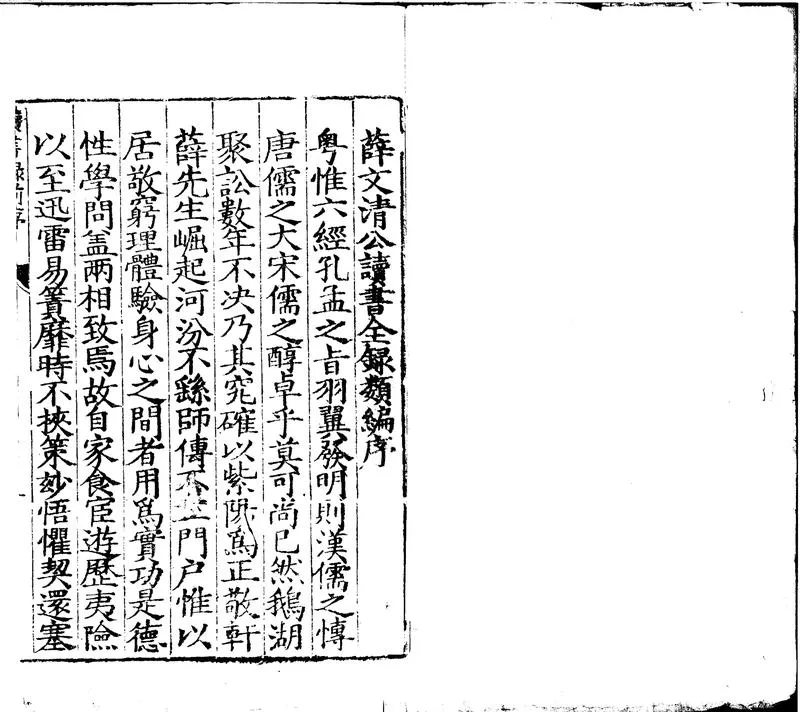 薛文清公讀書全録類編序
粤惟六經孔孟之旨羽翼發明則漢儒之慱
唐儒之大宋儒之醇卓乎莫可尚已然鵝湖
聚訟數年不决乃其究確以紫陽爲正敬軒
薛先生崛起河汾不繇師傳不立門户惟以
居敬窮理體驗身心之間者用爲實功是德
性學問盖两相致焉故自家食宦遊歷夷險
以至迅雷易簀靡時不挾策玅悟懼契還塞
讀書録前序